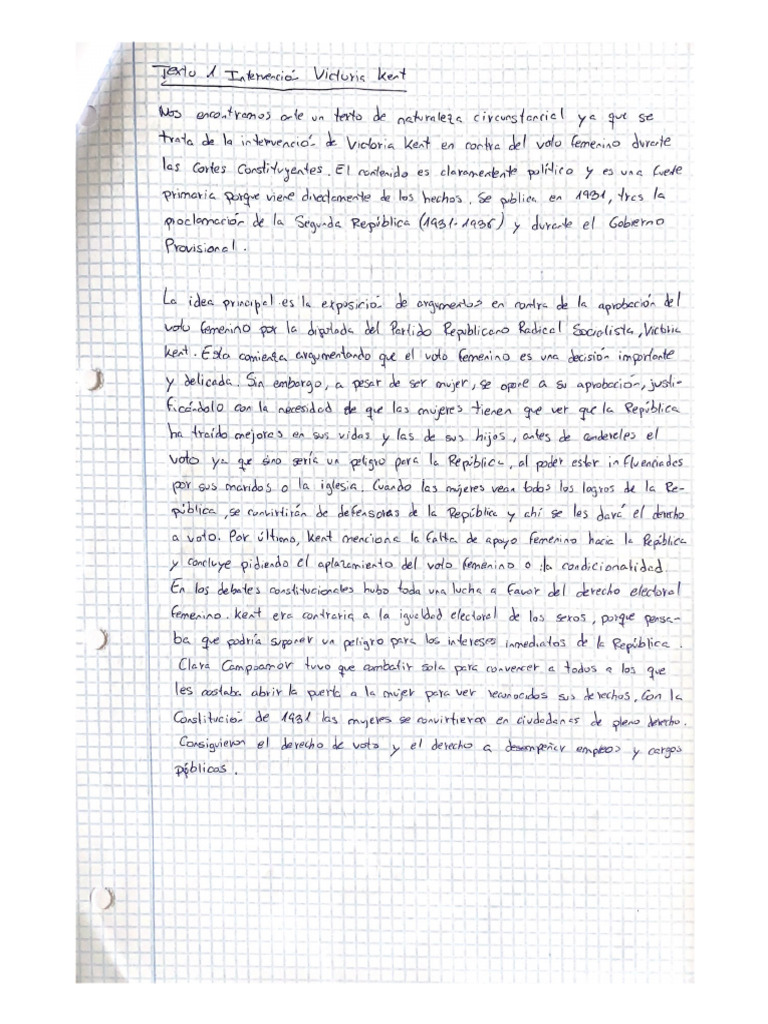 Texto 1 Intervención Victoria Kent
Nos encontramos ante un texto de naturaleza circunstancial ya que se
trata de la intervención de Victoria Kent en contra del voto femenino durante
las Cortes Constituyentes. El contenido es claramentente político y es una fuete
primaria porque viene directamente de los hechos. Se publica en 1931, tras la
proclamación de la Segunda República (1931-1936) y durante el Gobierno
Provisional.
La idea principal es la exposición de argumentos en contra de la aprobación del
voto femenino por la diputada del Partido Republicano Radical Socialista, Victoria
Kent. Esta comienza argumentando que el voto femenino es una decisión importante
y delicada. Sin embargo, a pesar de ser mujer, se opone a su aprobación, justi-
ficándolo con la necesidad de que las mujeres tienen que ver que la República
ha traído mejoras en sus vidas y las de sus hijos, antes de concederles el
voto ya que sino sería un peligro para la República, al poder estar influenciadas
por sus maridos o la iglesia. Cuando las mujeres vean todos los logros de la Re-
pública, se convirtirán de defensoras de la República y ahí se les dará el derecho
a voto. Por último, Kent menciona la falta de apoyo femenino hacia la República
y concluye pidiendo el aplazamiento del voto femenino o la condicionalidad.
En los debates constitucionales hubo toda una lucha a favor del derecho electoral
femenino. Kent era contraria a la igualdad electoral de los sexos, porque pensa-
ba que podría suponer un peligro para los intereses inmediatos de la República.
Clara Campoamor tuvo que combatir sola para convencer a todos a los que
les costaba abrir la puerta a la mujer para ver reconocidos sus derechos. Con la
Constitución de 1931 las mujeres se convirtieron en ciudadanas de pleno derecho.
Consiguieron el derecho de voto y el derecho a desempeñar empleos y cargos
públicos.